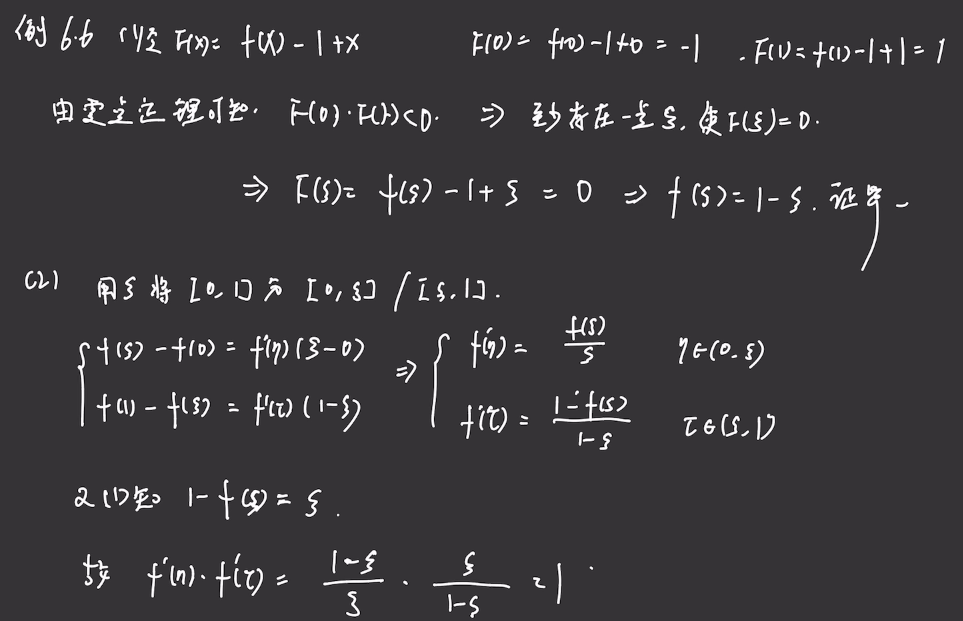 例 6.6 (1) 令 F(x) = f(x) - 1 + x F(0) = f(0) - 1 + 0 = -1 . F(1) = f(1) - 1 + 1 = 1
由零点定理可知. F(0)·F(1)<0. ⇒ 至少存在一点 ξ, 使 F(ξ) = 0.
⇒ F(ξ) = f(ξ) - 1 + ξ = 0 ⇒ f(ξ) = 1 - ξ. 证毕
(2) 用 ξ 将 [0, 1] 分 [0, ξ] / [ξ, 1].
{ f(ξ) - f(0) = f'(η)(ξ - 0) ⇒ { f'(η) = f(ξ)/ξ η∈(0, ξ)
f(1) - f(ξ) = f'(τ)(1 - ξ) f'(τ) = (1 - f(ξ))/(1 - ξ) τ∈(ξ, 1)
又(1)知 1 - f(ξ) = ξ.
故 f'(η)·f'(τ) = (1 - ξ)/ξ · ξ/(1 - ξ) = 1.